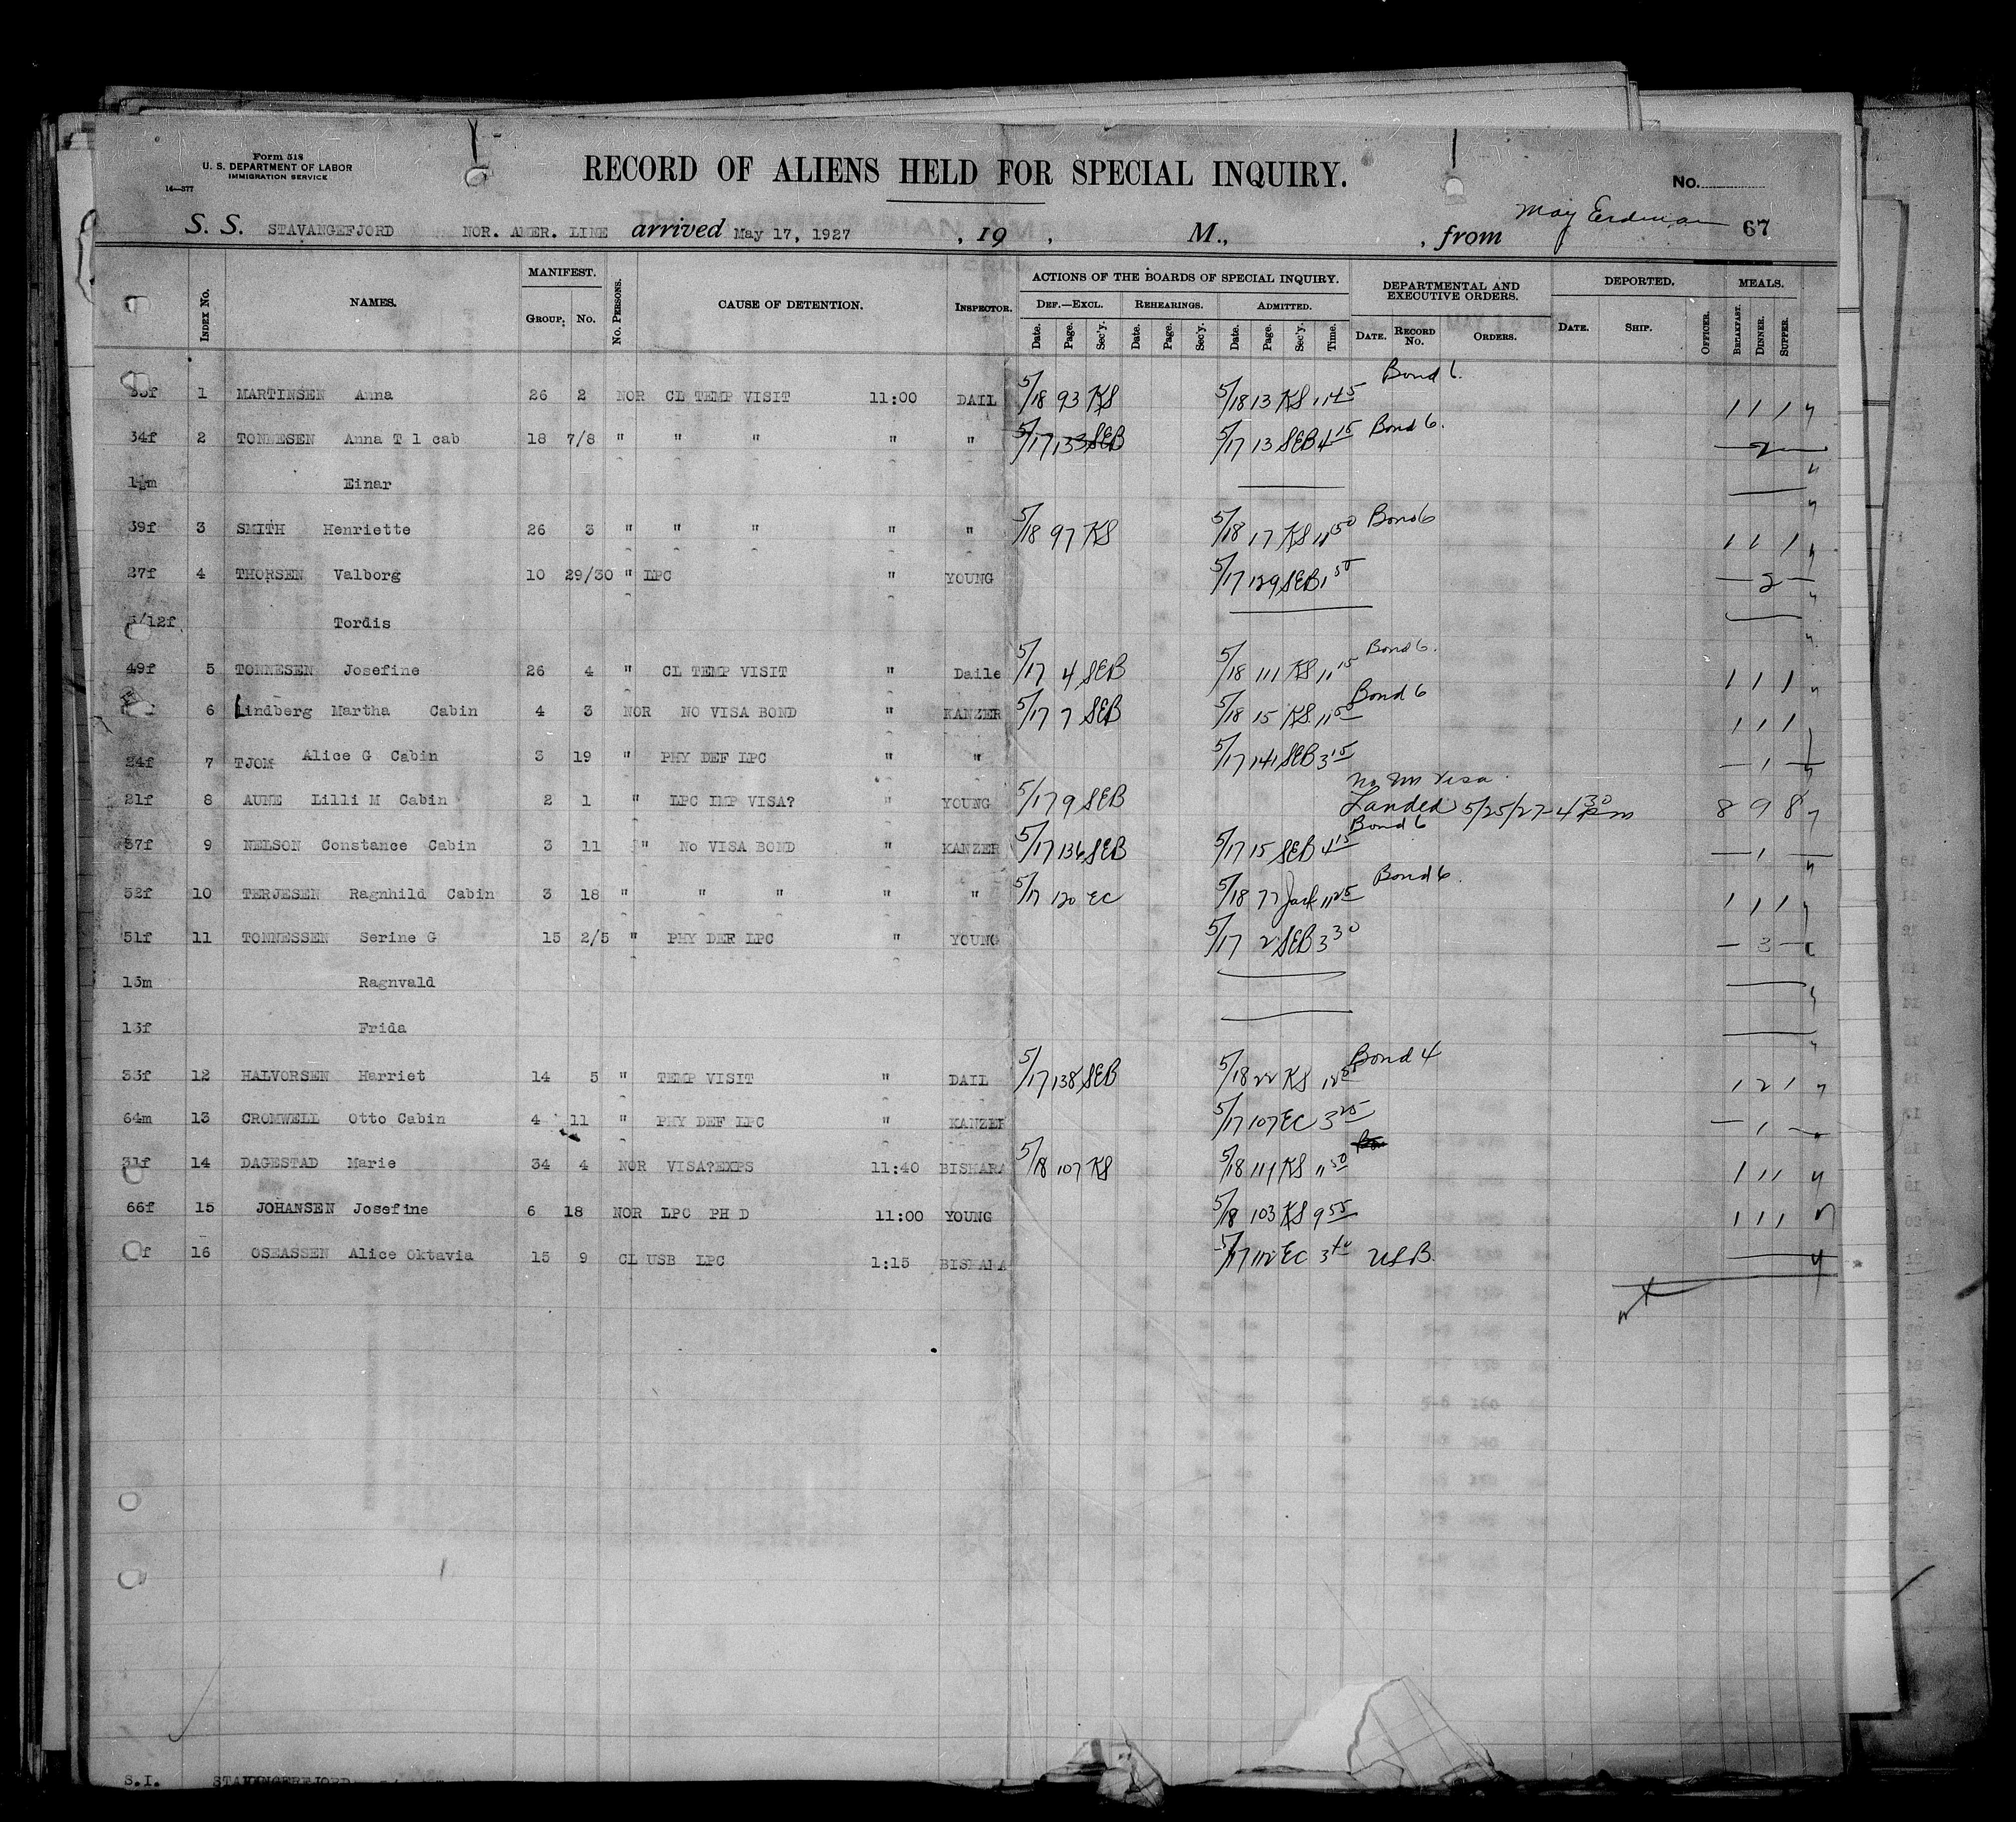 Form 518
U. S. DEPARTMENT OF LABOR
IMMIGRATION SERVICE
14—377
RECORD OF ALIENS HELD FOR SPECIAL INQUIRY.
No.
S. S. STAVANGEFJORD NOR. AMER. LINE arrived May 17, 1927 , 19 , M., , from May Erdman 67
INDEX No. NAMES. MANIFEST. GROUP. No. No. PERSONS. CAUSE OF DETENTION. INSPECTOR. ACTIONS OF THE BOARDS OF SPECIAL INQUIRY. DEF.—EXCL. REHEARINGS. ADMITTED. DEPARTMENTAL AND EXECUTIVE ORDERS. DEPORTED. MEALS.
Date. Page. Sec'y. Date. Page. Sec'y. Date. Page. Sec'y. Time. DATE. RECORD No. ORDERS. DATE. SHIP. OFFICER. BREAKFAST. DINNER. SUPPER.
1 MARTINSEN Anna 26 2 NOR CL TEMP VISIT 11:00 DAIL 5/18 93 KS 5/18 13 KS 11 45 Bond 6. 1 1 1
34f 2 TONNESEN Anna T 1 cab 18 7/8 " " " " " 5/17 133 SEB 5/17 13 SEB 4 15 Bond 6. — 2 —
Einar
39f 3 SMITH Henriette 26 3 " " " " " 5/18 97 KS 5/18 17 KS 11 50 Bond 6 1 1 1
27f 4 THORSEN Valborg 10 29/30 " LPC " YOUNG 5/17 129 SEB 1 50 — 2 —
/12f Tordis
49f 5 TONNESEN Josefine 26 4 " CL TEMP VISIT " Daile 5/17 4 SEB 5/18 111 KS 11 15 Bond 6. 1 1 1
6 Lindberg Martha Cabin 4 3 NOR NO VISA BOND " KANZER 5/17 7 SEB 5/18 15 KS 11 50 Bond 6 1 1 1
24f 7 TJOM Alice G Cabin 3 19 " PHY DEF LPC " " 5/17 141 SEB 3 15 — 1 —
21f 8 AUNE Lilli M Cabin 2 1 " LPC IMP VISA? " YOUNG 5/17 9 SEB Visa Landed 5/25/27 - 4 30 pm 8 9 8
37f 9 NELSON Constance Cabin 3 11 " No VISA BOND " KANZER 5/17 136 SEB 5/17 15 SEB 4 15 Bond 6 — 1 —
52f 10 TERJESEN Ragnhild Cabin 3 18 " " " " " 5/17 120 EC 5/18 77 11 25 Bond 6. 1 1 1
51f 11 TONNESSEN Serine G 15 2/5 " PHY DEF LPC " YOUNG 5/17 2 SEB 3 30 — 3 —
15m Ragnvald
13f Frida
33f 12 HALVORSEN Harriet 14 5 " TEMP VISIT " DAIL 5/17 138 SEB 5/18 22 KS Bond 4 1 2 1
64m 13 CROMWELL Otto Cabin 4 11 " PHY DEF LPC " KANZER 5/17 107 EC 3 25 — 1 —
31f 14 DAGESTAD Marie 34 4 NOR VISA?EXPS 11:40 BISHARA 5/18 107 KS 5/18 KS 11 50 1 1 1
66f 15 JOHANSEN Josefine 6 18 NOR LPC PH D 11:00 YOUNG 5/18 103 KS 9 55 1 1 1
f 16 OSEASSEN Alice Oktavia 15 9 CL USB LPC 1:15 BISHARA 5/17 112 EC USB.
S.I. STAVANGEFJORD